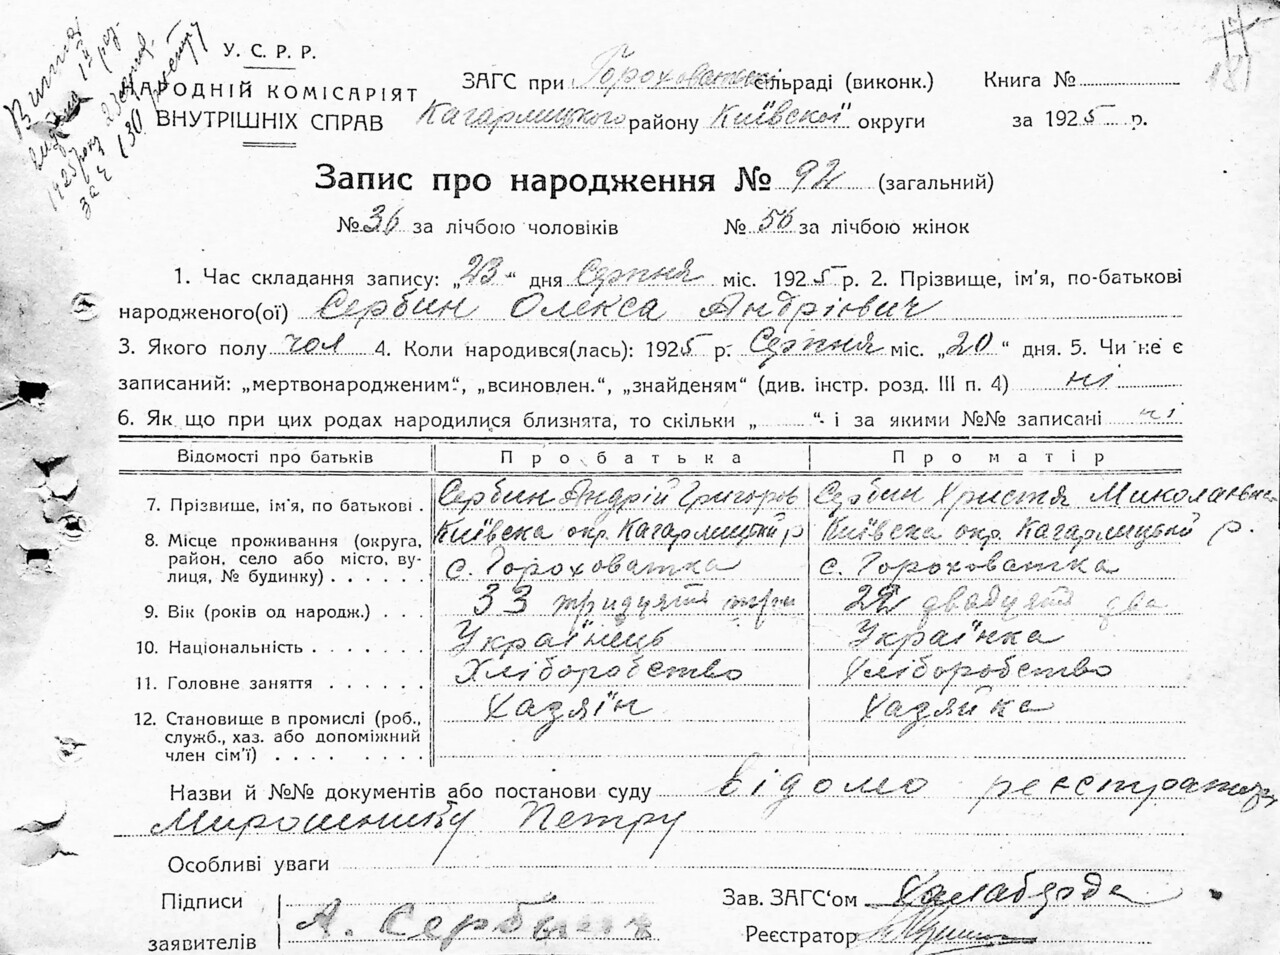 Витяг
видано 1й раз
1925 року 23 серпня
за № 130 реєстру
17
181
У. С. Р. Р.
НАРОДНІЙ КОМІСАРІЯТ
ВНУТРІШНІХ СПРАВ
ЗАГС при Гороховатськ сільраді (виконк.) Книга №
Кагарлицкого району Київскої округи за 1925 р.
Запис про народження № 92 (загальний)
№ 36 за лічбою чоловіків № 56 за лічбою жінок
1. Час складання запису: „23“ дня Серпня міс. 1925 р. 2. Прізвище, ім'я, по-батькові
народженого(ої) Сербин Олекса Андрієвич
3. Якого полу чол 4. Коли народився(лась): 1925 р. Серпня міс. „20“ дня. 5. Чи не є
записаний: „мертвонародженим“, „всиновлен.“, „знайденям“ (див. інстр. розд. III п. 4) ні
6. Як що при цих родах народилися близнята, то скільки „ “ і за якими №№ записані ні
Відомості про батьків Про батька Про матір
7. Прізвище, ім'я, по батькові . Сербин Андрій Григоров Сербин Христя Миколаівна
8. Місце проживання (округа, Київска окр. Кагарлицкий р Київска окр. Кагарлицький р.
район, село або місто, ву-
лиця, № будинку) . . . . . . с. Гороховатка с. Гороховатка
9. Вік (років од народж.) . . . 33 тридцять три 22 двадцять два
10. Національність . . . . . . . Українець Українка
11. Головне заняття . . . . . . Хліборобство Хліборобство
12. Становище в промислі (роб., Хазяїн Хазяйка
служб., хаз. або допоміжний
член сім'ї) . . . . . . . .
Назви й №№ документів або постанови суду Відомо реєстратору
Мирошнику Петру
Особливі уваги
Підписи
заявителів А. Сербын
Зав. ЗАГС'ом
Реєстратор